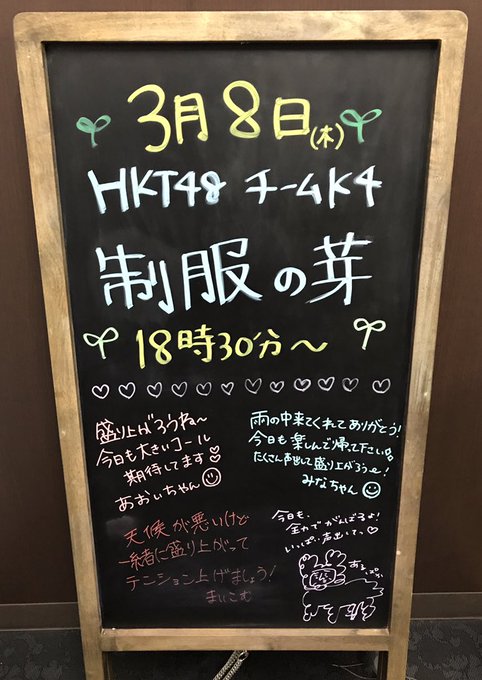 3月8日(木)
HKT48 チームK4
制服の芽
18時30分〜
盛り上がろうね〜
今日も大きいコール
期待してます
あおいちゃん
雨の中来てくれてありがとう!
今日も楽しんで帰って下さい。
たくさん声出して盛り上がろうぜ!
みなちゃん
天候が悪いけど
一緒に盛り上がって
テンション上げましょう!
まいこむ
今日も、
全力でがんばろよ!
いっぱい声出てっ
あるぱか